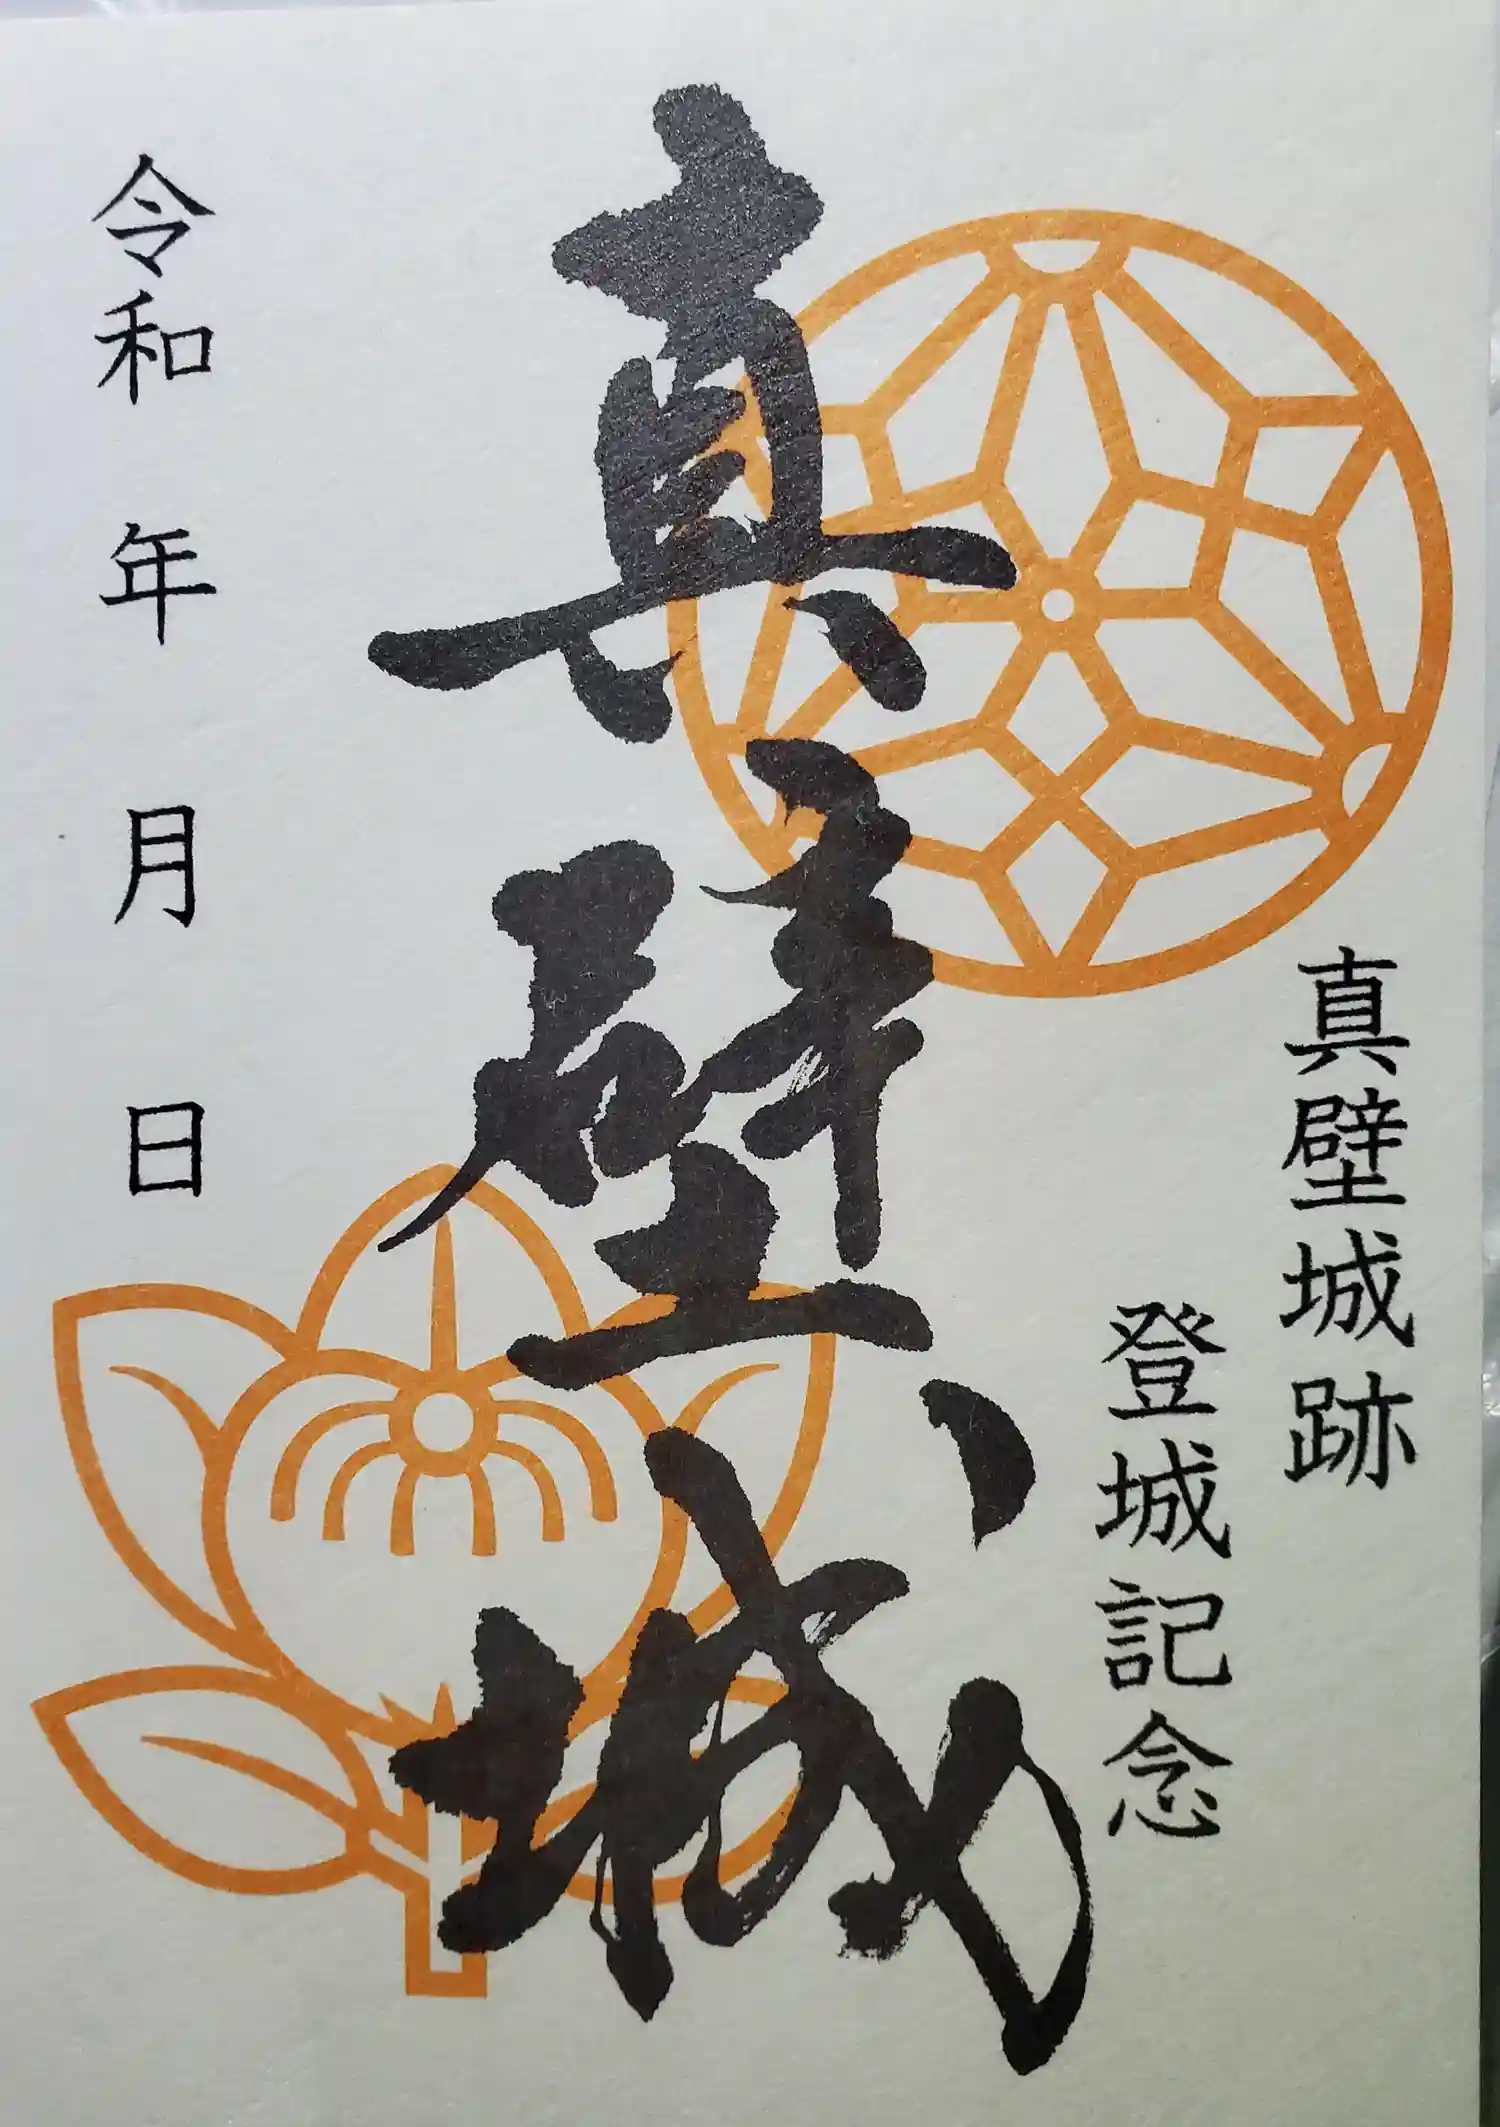 真壁城跡
登城記念
真壁城
令和 年 月 日